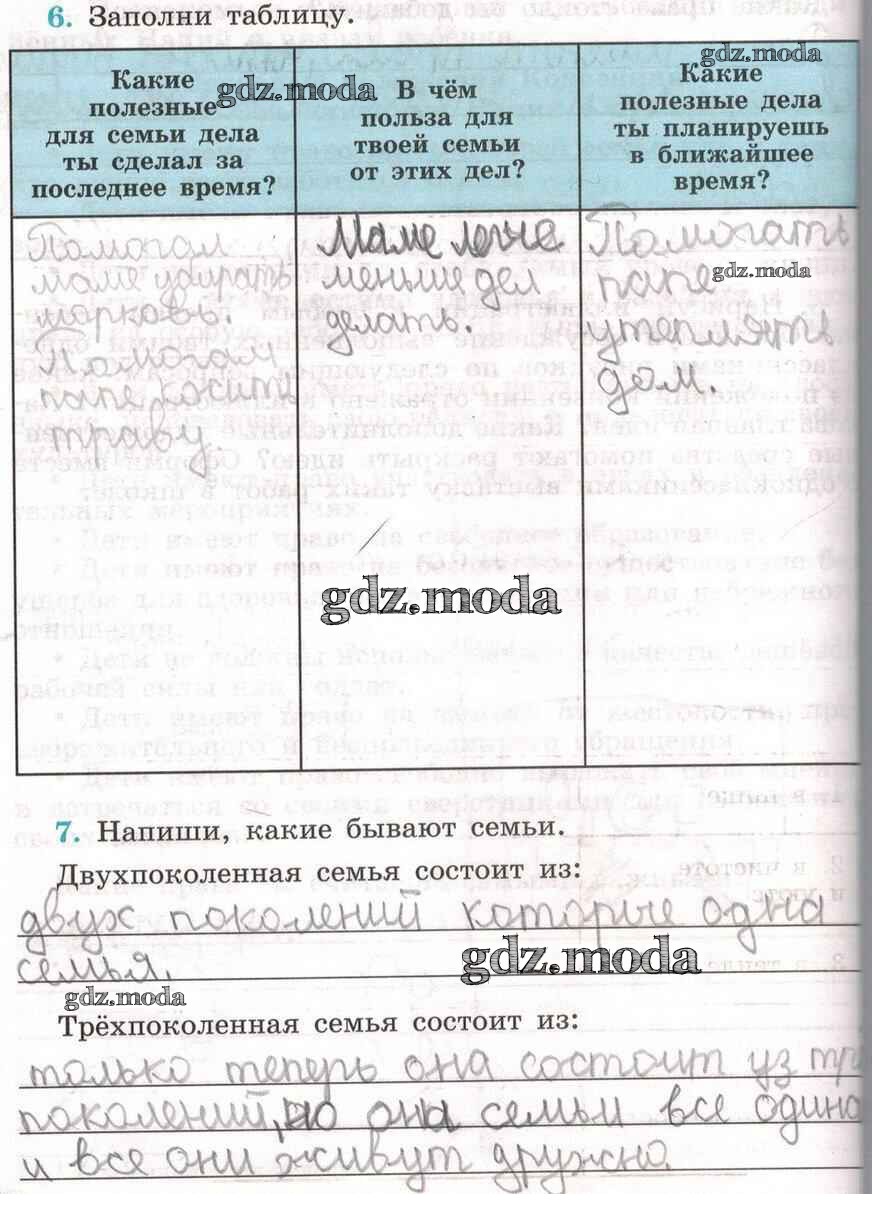 6. Заполни таблицу.
Какие
полезные
для семьи дела
ты сделал за
последнее время?
gdz.moda
В чём
польза для
твоей семьи
от этих дел?
gdz.moda
Какие
полезные дела
ты планируешь
в ближайшее
время?
Помогал
маме убирать
морковь.
Помогал
папе косить
траву.
Маме легче
меньше дел
делать.
Помогать
gdz.moda
папе
утеплять
дом.
gdz.moda
7. Напиши, какие бывают семьи.
Двухпоколенная семья состоит из:
двух поколений которые одна
семья.
gdz.moda
gdz.moda
Трёхпоколенная семья состоит из:
только теперь она состоит уз
поколений, но она семьи все
и все они живут дружно.